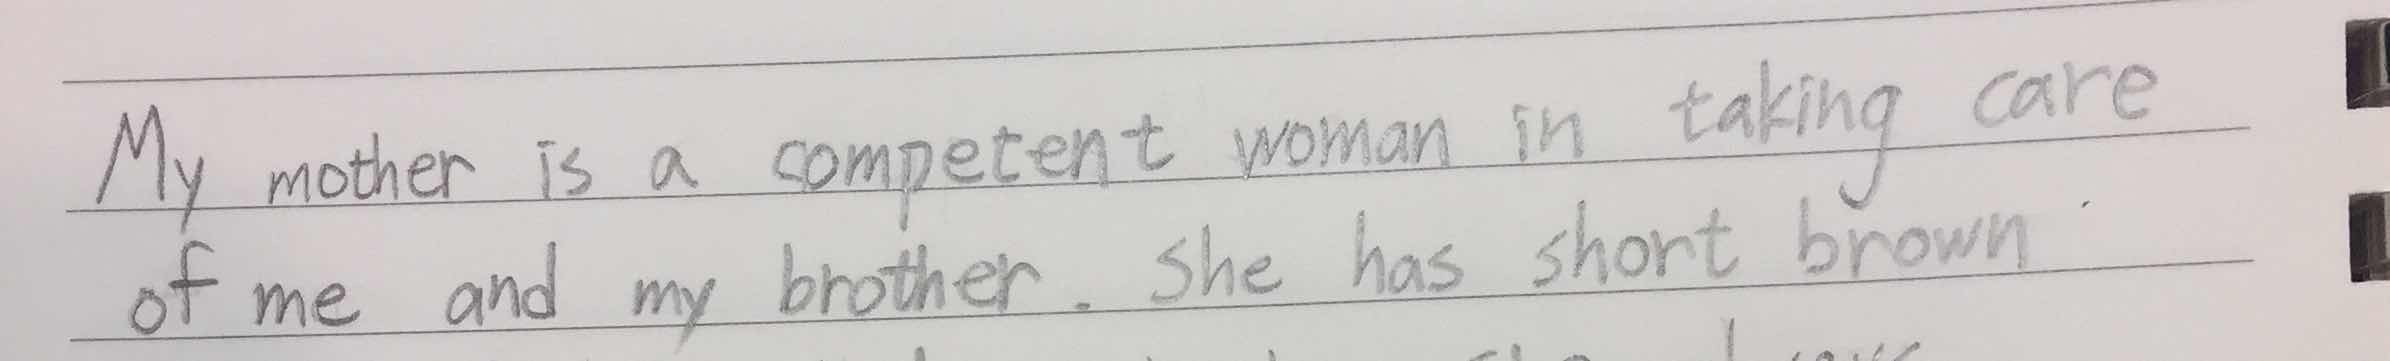 My mother is a competent woman in taking care
of me and my brother. She has short brown